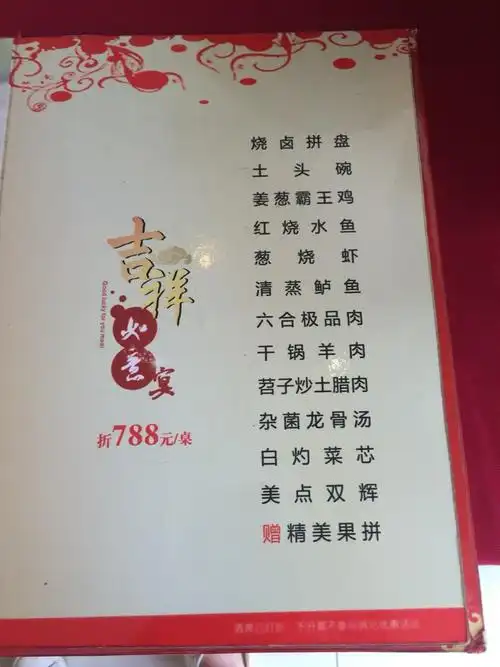 吉祥
如意
宴
Good lucky for you meet
折788元/桌
烧卤拼盘
土头碗
姜葱霸王鸡
红烧水鱼
葱烧虾
清蒸鲈鱼
六合极品肉
干锅羊肉
苕子炒土腊肉
杂菌龙骨汤
白灼菜芯
美点双辉
赠精美果拼